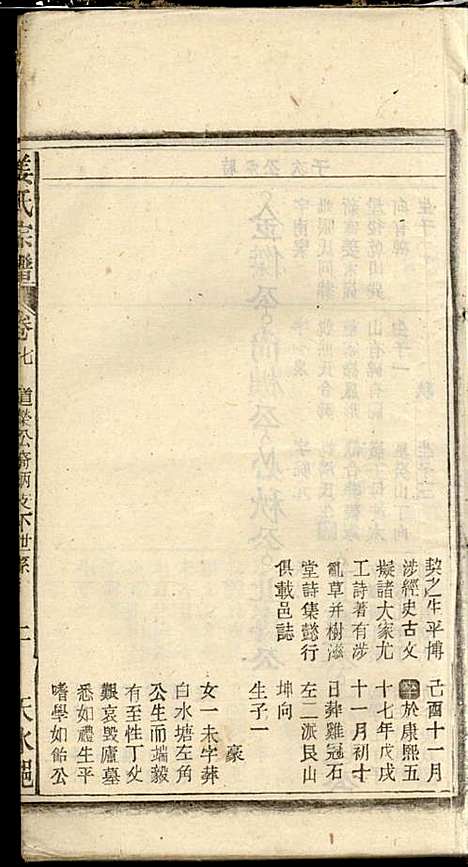 契之生平博
涉經史古文
擬諸大家尤
工詩著有涉
亂草并樹滋
堂詩集懿行
俱載邑誌
己酉十一月
卒於康熙五
十七年戊戌
十一月初十
日葬雞冠石
左二派艮山
坤向
生子一
豪
女一未字葬
白水塘左角
公生而端毅
有至性丁父
艱哀毀廬墓
悉如禮生平
嗜學如飴公
姜氏宗譜
卷七
道榮公房炳支下世系
二
天水